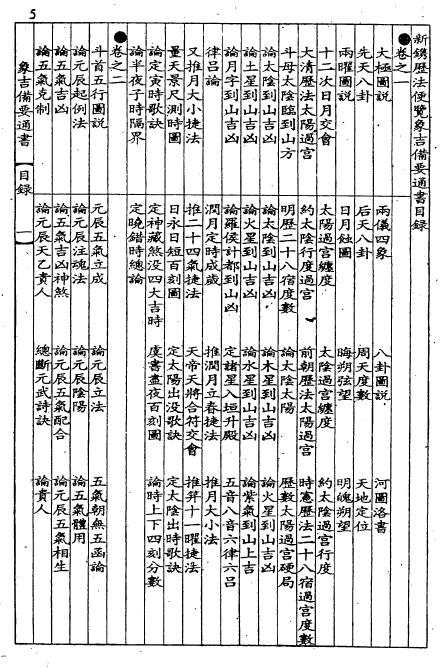 新鐫歷法便覽象吉備要通書目錄
●卷之一
大極圖說 兩儀四象 八卦圖說 河圖洛書
先天八卦 后天八卦 周天度數 天地定位
兩曜圖說 日月蝕圖 晦朔弦望 明魄朔望
十二次日月交會 太陽過宮纏度 太陰過宮纏度 約太陰過宮行度
大清歷法太陽過宮 約太陰行度過宮 前朝歷法太陽過宮 時憲歷法二十八宿過宮度數
斗母太陰臨到山方 明歷二十八宿度數 論太陰太陽 歷數太陽過宮硬局
論太陰到山吉凶 論太陰到山吉凶 論木星到山吉凶 論火星到山吉凶
論土星到山吉凶 論火星到山吉凶 論水星到山吉凶 論紫氣到山上吉
論月字到山吉凶 論羅侯計都到山凶 定諸星八垣升殿 五音八音六律六呂
律呂論 潤月定時成歲 推潤月立春捷法 推月大小法
又推月大小捷法 推二十四氣捷法 天帝天將合符交會 推昇十一曜捷法
量天景尺測時圖 日永日短百刻圖 定太陽出没歌訣 定太陰出時歌訣
論定寅時歌訣 定神藏煞没四大吉時 虞書晝夜百刻圖 論時上下四刻分數
論半夜子時隔界 定曉錯時總論
●卷之二
斗首五行圖說 元辰五氣立成 論元辰立法 五氣朝無五函論
論元辰起例法 論元辰注魂法 論元辰陰陽 論五氣體用
論五氣吉凶 論五氣吉凶神煞 論元辰五氣配合 論元辰五氣相生
論五氣克制 論元辰天乙貴人 總斷元武詩訣 論貴人
象吉備要通書 目錄 一
5